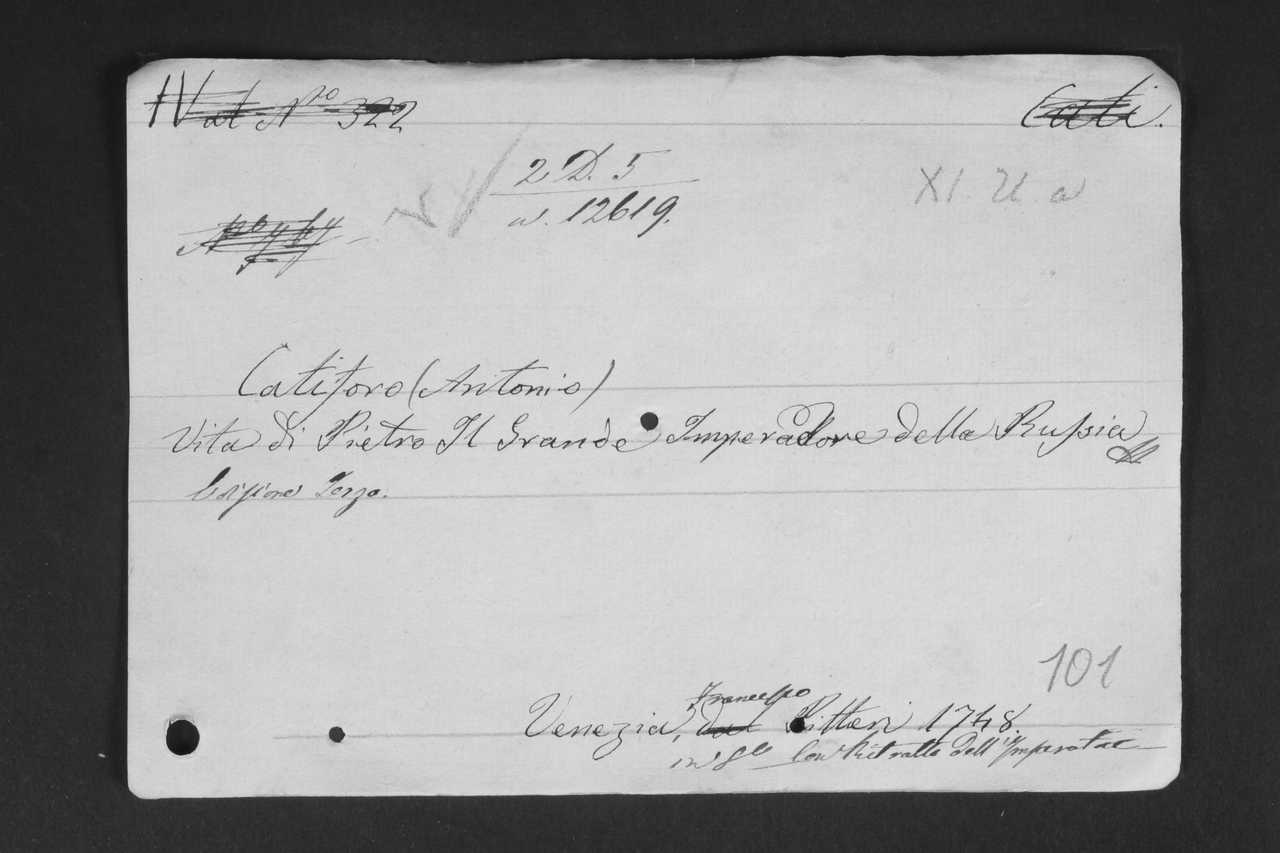 IVat Nro 322
Cati.
2. D. 5
XI. U. a
a. 12619.
Nro 767
Catiforo (Antonio)
Vita di Pietro Il Grande Imperadore della Russia
Edizione Terza.
101
Francesco
Venezia, dal Pitteri 1748.
in 8vo Con Ritratto dell'Imperatore